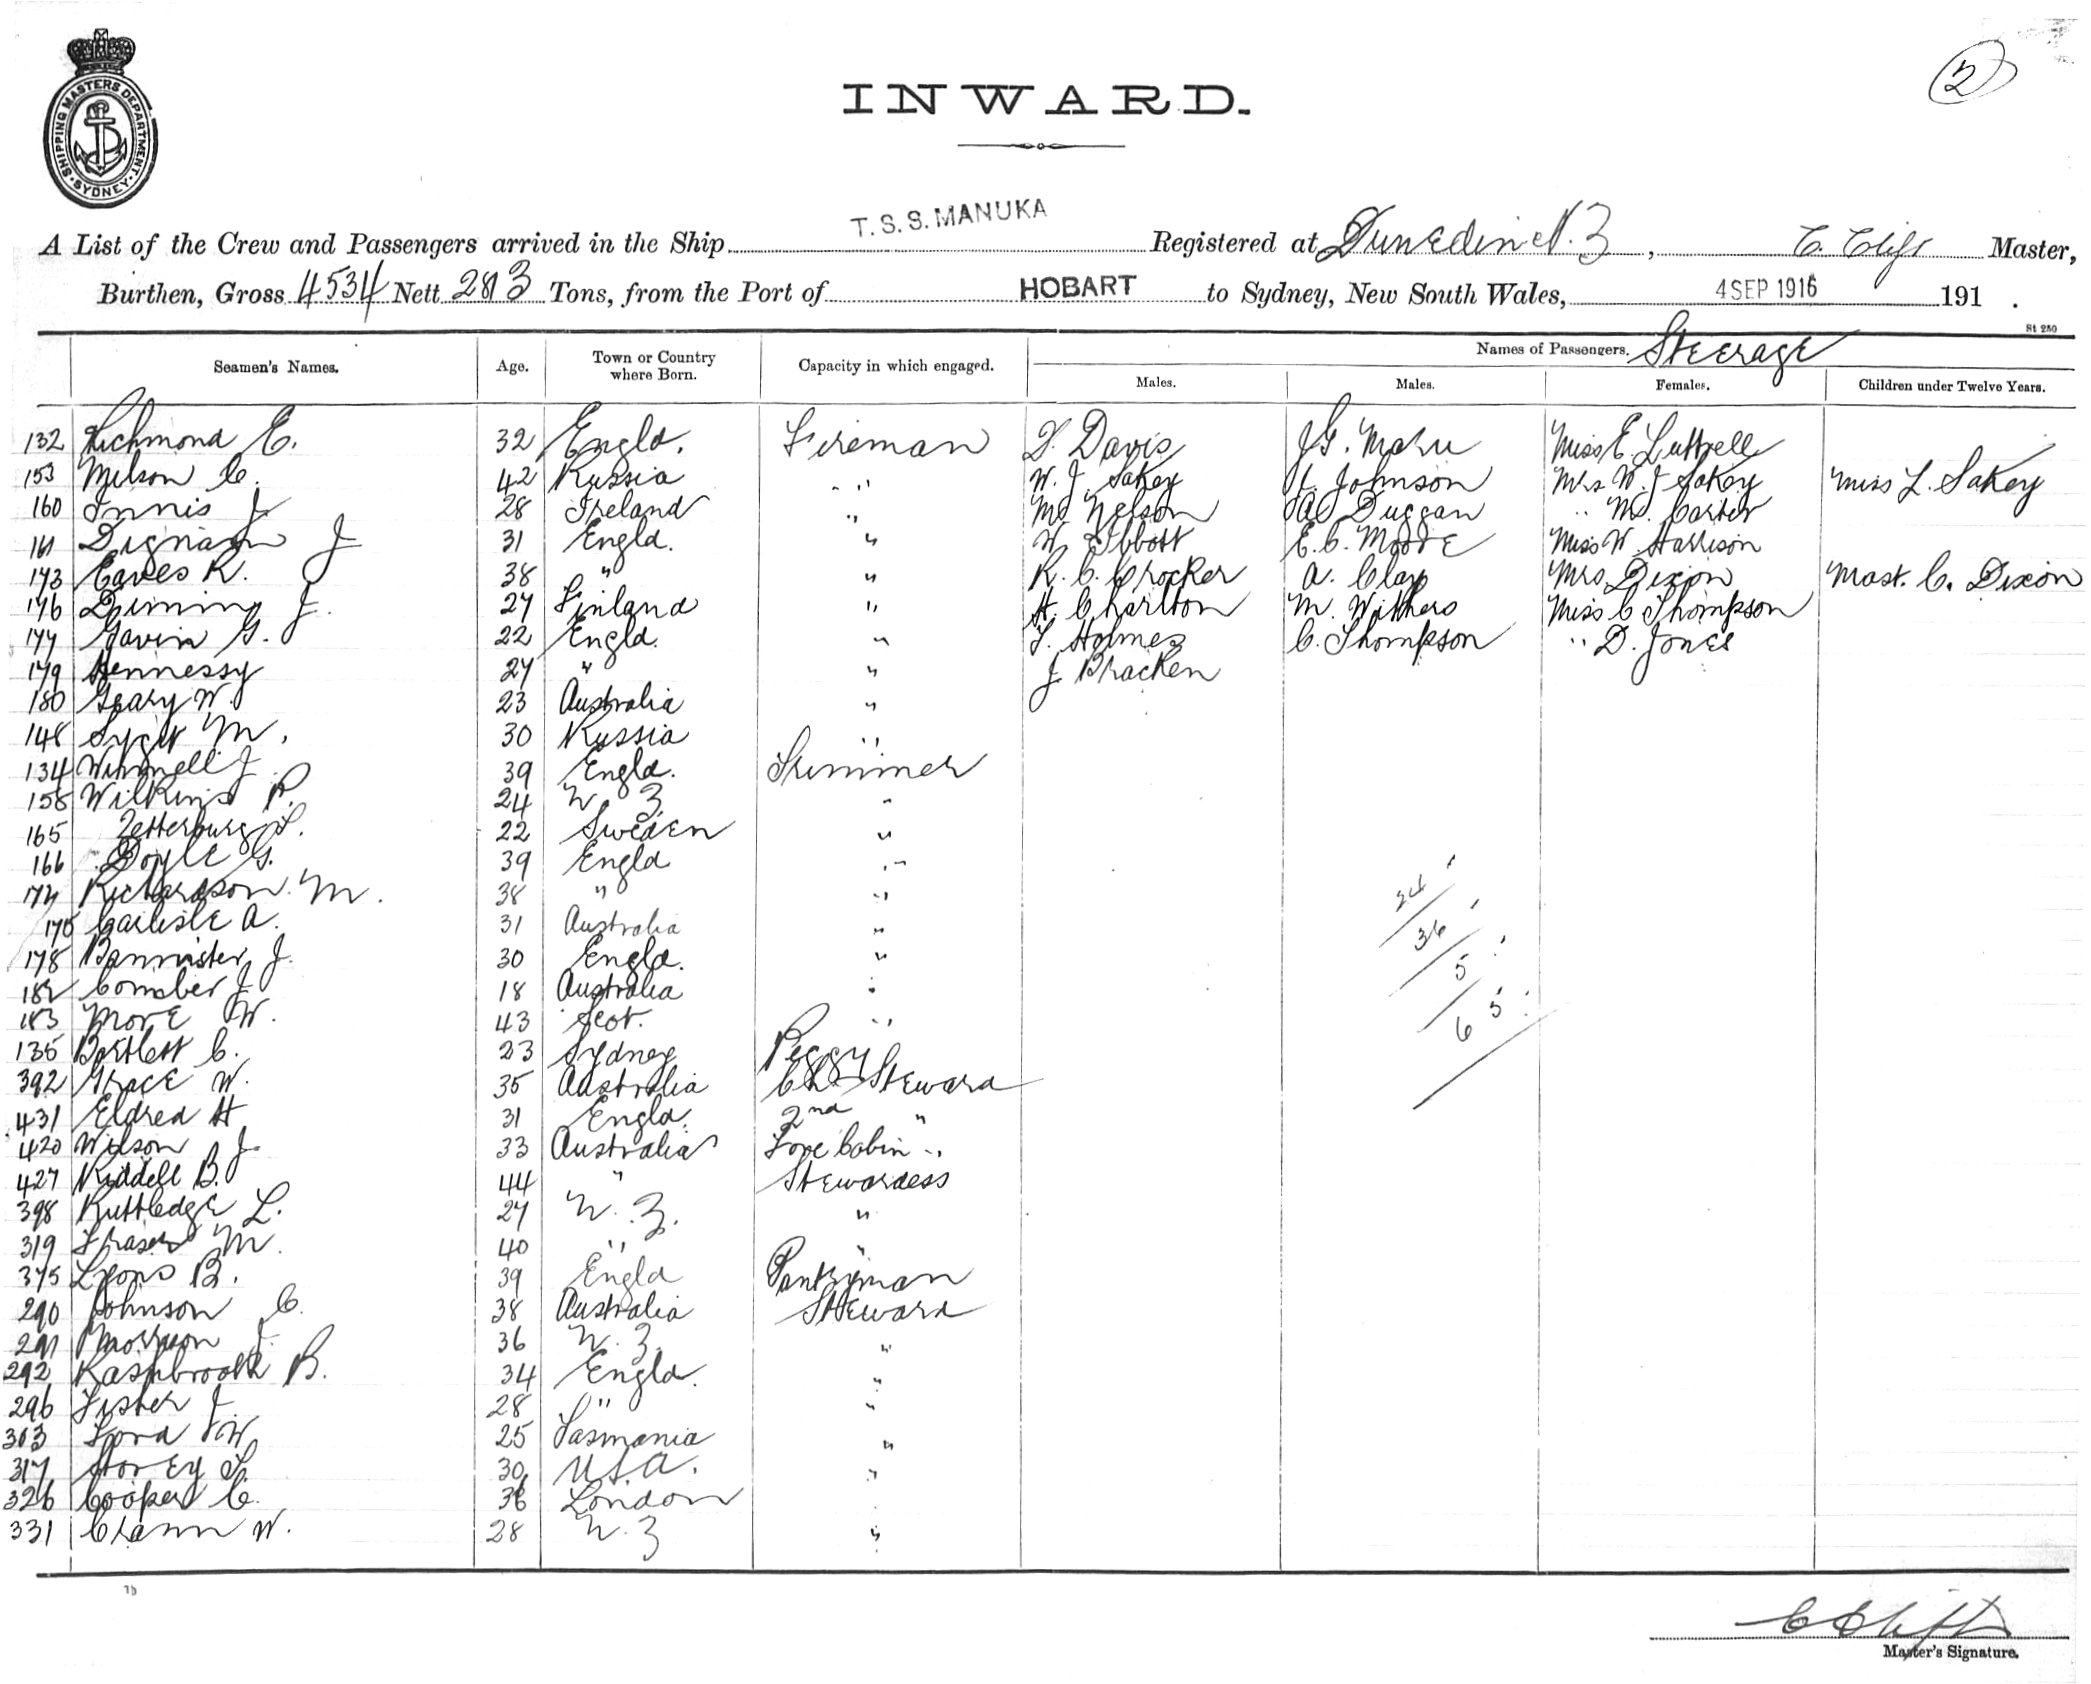 2
SHIPPING MASTERS DEPARTMENT. SYDNEY
INWARD.
A List of the Crew and Passengers arrived in the Ship T.S.S. MANUKA Registered at Dunedin N.Z, C. Clift Master,
Burthen, Gross 4534 Nett Tons, from the Port of HOBART to Sydney, New South Wales, 4 SEP 1916 191 .
St 280
Seamen's Names. Age. Town or Country where Born. Capacity in which engaged. Names of Passengers. Steerage
Males. Males. Females. Children under Twelve Years.
132 Richmond E. 32 Engld. Fireman Davis J G. Miss E. Luttrell
153 C. 42 Russia " W. J Sakey Johnson Mrs W. J Sakey Miss L. Sakey
160 Innis J 28 Ireland " Nelson Duggan " Carter
161 Dignam J 31 Engld. " W Ibbott E. C. Moore Miss W. Harrison
173 Eaves R. 38 " " R. C. Crocker A. Clay Mrs Dixon Mast. C. Dixon
176 J. 27 Finland " H. Charlton M. Withers Miss C Thompson
177 Gavin G. 22 Engld. " Holmes C. Thompson " D. Jones
179 Hennessy 27 " " J Bracken
180 Geary W. 23 Australia "
148 M. 30 Russia "
134 J 39 Engld. Trimmer
158 Wilkins P. 24 N Z "
165 Zetterburg 22 Sweden "
166 Doyle G. 39 Engld "
174 Richardson M. 38 " "
175 Carlisle A. 31 Australia "
178 Bannister J. 30 Engld. "
182 Comber J 18 Australia "
183 More W. 43 Scot. "
135 Bartlett C. 23 Sydney Peggy
392 Grace W. 35 Australia Ch. Steward
431 Eldred H 31 Engld. 2nd "
420 Wilson J 33 Australia Fore Cabin "
427 Riddell B. 44 " Stewardess
398 Ruttledge L. 27 N. Z. "
319 Fraser M. 40 " "
375 Lyons B. 39 Engld Pantryman
290 Johnson C. 38 Australia Steward
291 Morrison J. 36 N. Z. "
292 Rashbrook B. 34 Engld. "
296 Fisher J 28 " "
303 Ford W 25 Tasmania "
317 Storey 30 U.S.A. "
326 Cooper C. 36 London
331 Crann W. 28 N. Z "
24
36
5
65
C Clift
Master's Signature.